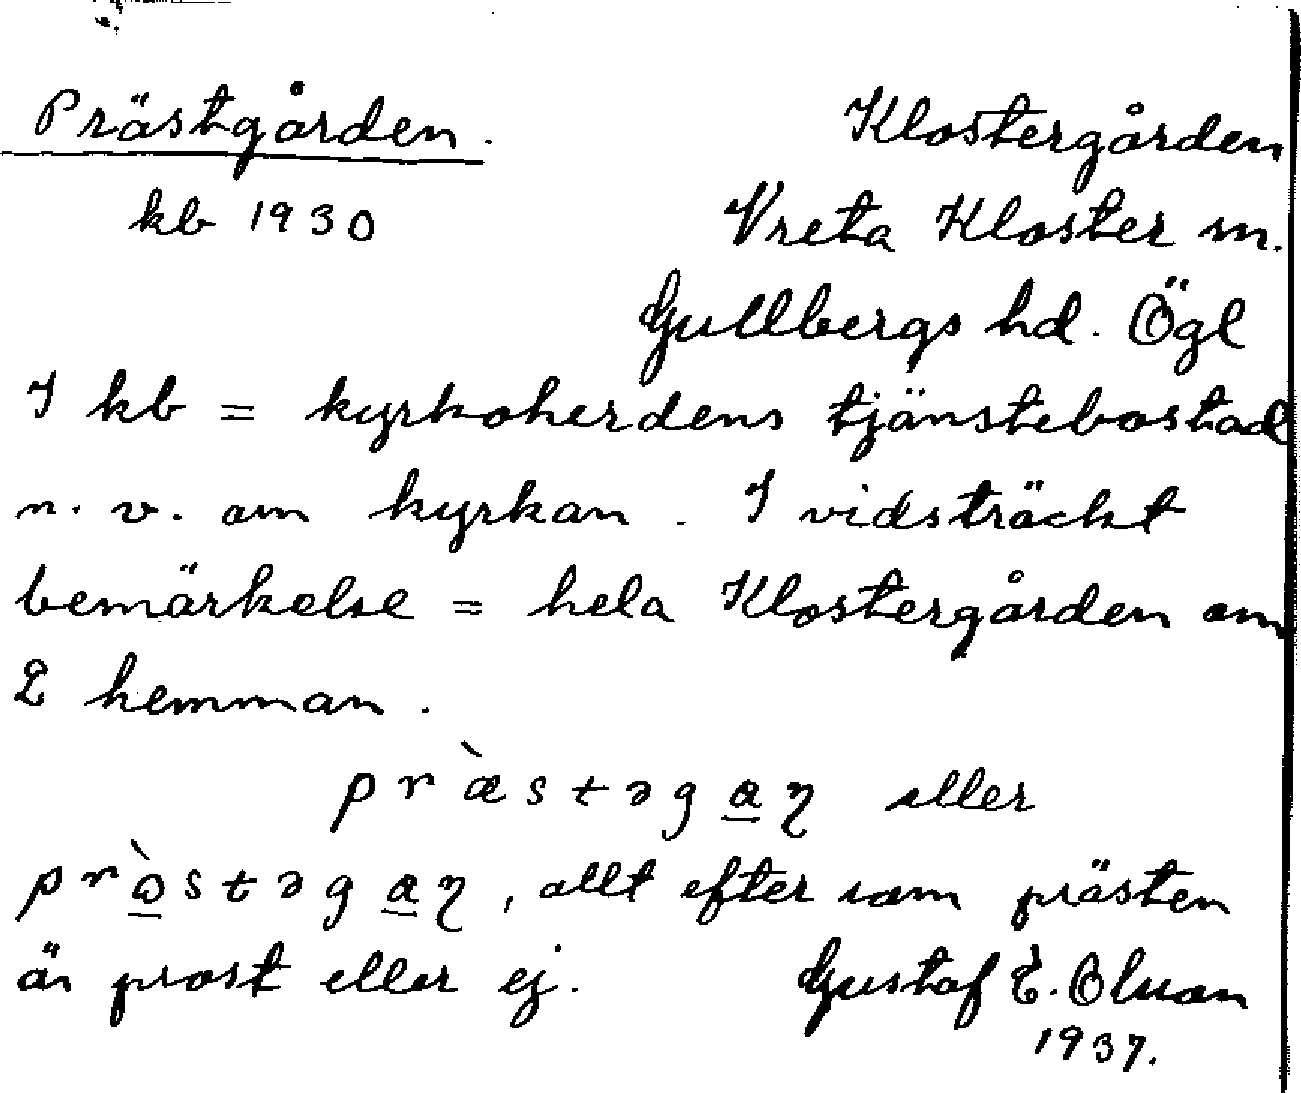 Prästgården.
Klostergården
kb 1930
Vreta Kloster sn.
Gullbergs hd. Ögl
I kb = kyrkoherdens tjänstebostad
n. v. om kyrkan. I vidsträckt
bemärkelse = hela Klostergården om
2 hemman.
pr&#768;æstəga̲ɳ eller
pr&#768;o̲stəga̲ɳ, allt efter som prästen
är prost eller ej. Gustaf E. Olsson
1937.